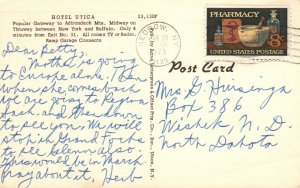 HOTEL UTICA 23,130F
Popular Gateway to Adirondack Mts. Midway on
Thruway between New York and Buffalo. Only 4
minutes from Exit No. 31. All rooms TV or Radio.
Ramp Garage Connects
PHARMACY
8¢
UNITED STATES POSTAGE
Post Card
Dear Betty,
Martha is going to
Europe alone. Then
when she comes back
we are going to Regina
Sask. and then down
to see you. We will
stop in Grand Forks
to see Glenn also
This would be in March
pray about it. Herb
Mrs G.
Box 386
Wishek, N. D
North Dakota